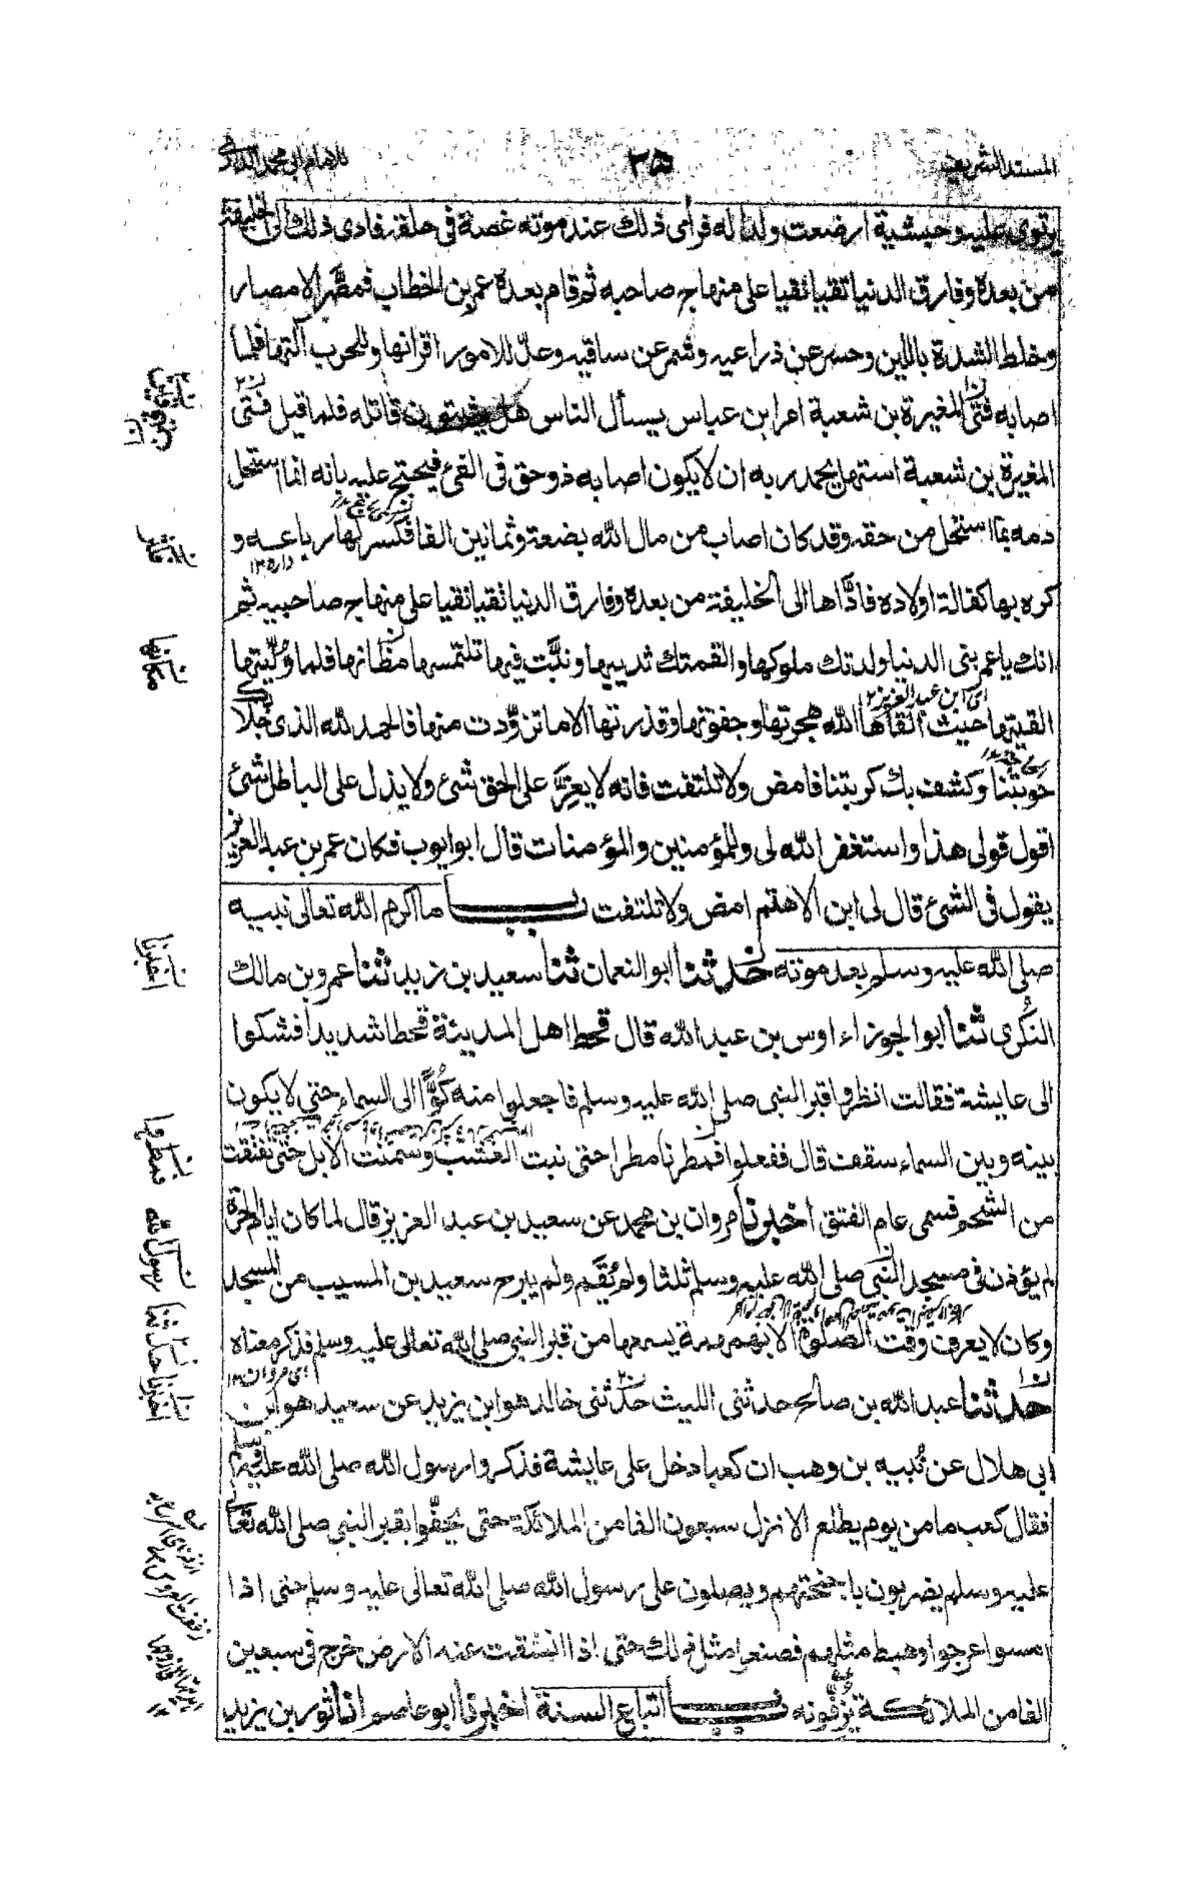 المسند الشريف ٢٥ للامام ابى محمد الدارمى
يرتوى عليه وحبشية ارضعت ولدا له فرأى ذلك عند موته غصة فى حلقه فادى ذلك الى الخليفة
من بعده وفارق الدنيا تقيا نقيا على منهاج صاحبه ثم قام بعده عمر بن الخطاب فمصّر الامصار
وخلط الشدة باللين وحسر عن ذراعيه وشمر عن ساقيه وعدّ للامور اقرانها وللحرب آلتها فلما
اصابه فتى المغيرة بن شعبة امر ابن عباس يسأل الناس هل يثبتون قاتله فلما قيل فتى
المغيرة بن شعبة استهل يحمد ربه ان لا يكون اصابه ذو حق فى الفئ فيحتج عليه بانه انما استحل
دمه بما استحل من حقه وقد كان اصاب من مال الله بضعة وثمانين الفا فكسر لها رباعه و
كره بها كفالة اولاده فادّاها الى الخليفة من بعده وفارق الدنيا تقيا نقيا على منهاج صاحبيه ثم
انك يا عمر بنى الدنيا ولدتك ملوكها والقمتك ثدييها ونبتّ فيها تلتمسها مظانها فلما وُلّيتها
اى ابن عبد العزيز ١٢
القيتها حيث القاها الله هجرتها وجفوتها وقذرتها الا ما تزوّدت منها فالحمد لله الذى جلا بك
حوبتنا وكشف بك كربتنا فامض ولا تلتفت فانه لا يعزّ على الحق شئ ولا يذل على الباطل شئ
اقول قولى هذا واستغفر الله لى وللمؤمنين والمؤمنات قال ابو ايوب فكان عمر بن عبد العزيز
يقول فى الشئ قال لى ابن الاهتم امض ولا تلتفت باب ما اكرم الله تعالى نبيه
صلى الله عليه وسلم بعد موته حدثنا ابو النعمان ثنا سعيد بن زيد ثنا عمرو بن مالك
النكُرى ثنا ابو الجوزاء اوس بن عبد الله قال قحط اهل المدينة قحطا شديدا فشكوا
الى عايشة فقالت انظروا قبر النبى صلى الله عليه وسلم فاجعلوا منه كُوًّا الى السماء حتى لا يكون
بينه وبين السماء سقف قال ففعلوا فمطرنا مطرا حتى نبت العشب وسمنت الابل حتى تفتقت
من الشحم فسمى عام الفتق اخبرنا مروان بن محمد عن سعيد بن عبد العزيز قال لما كان ايام الحرة
لم يؤذن فى مسجد النبى صلى الله عليه وسلم ثلثا ولم يُقَم ولم يبرح سعيد بن المسيب من المسجد
وكان لا يعرف وقت الصلوة الا بهمهمة يسمعها من قبر النبى صلى الله تعالى عليه وسلم فذكر معناه
اى مروان ١٢
حدثنا عبد الله بن صالح حدثنى الليث حدثنى خالد هو ابن يزيد عن سعيد هو ابن
ابى هلال عن نُبيه بن وهب ان كعبا دخل على عايشة فذكروا رسول الله صلى الله عليه وسلم
فقال كعب ما من يوم يطلع الا نزل سبعون الفا من الملائكة حتى يحفّوا بقبر النبى صلى الله تعالى
عليه وسلم يضربون باجنحتهم ويصلون على رسول الله صلى الله تعالى عليه وسلم حتى اذا
امسوا عرجوا وهبط مثلهم فصنعوا مثل ذلك حتى اذا انشقت عنه الارض خرج فى سبعين
الفا من الملائكة يزفّونه باب اتباع السنة اخبرنا ابو عاصم انا ثور بن يزيد
مكانها
اخبرنا
فمطروا
رسول الله
حدثنا
اخبرنا